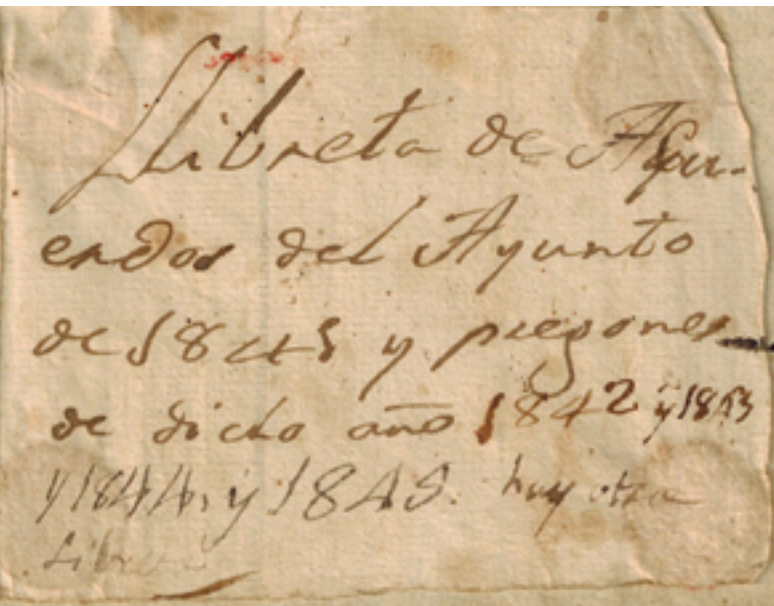 Llibreta de Acuer-
erdos del Ayunto
de 1843 y pregones
de dicho año 1842 y 1843
y 1844, y 1845. hay otra
Libreta